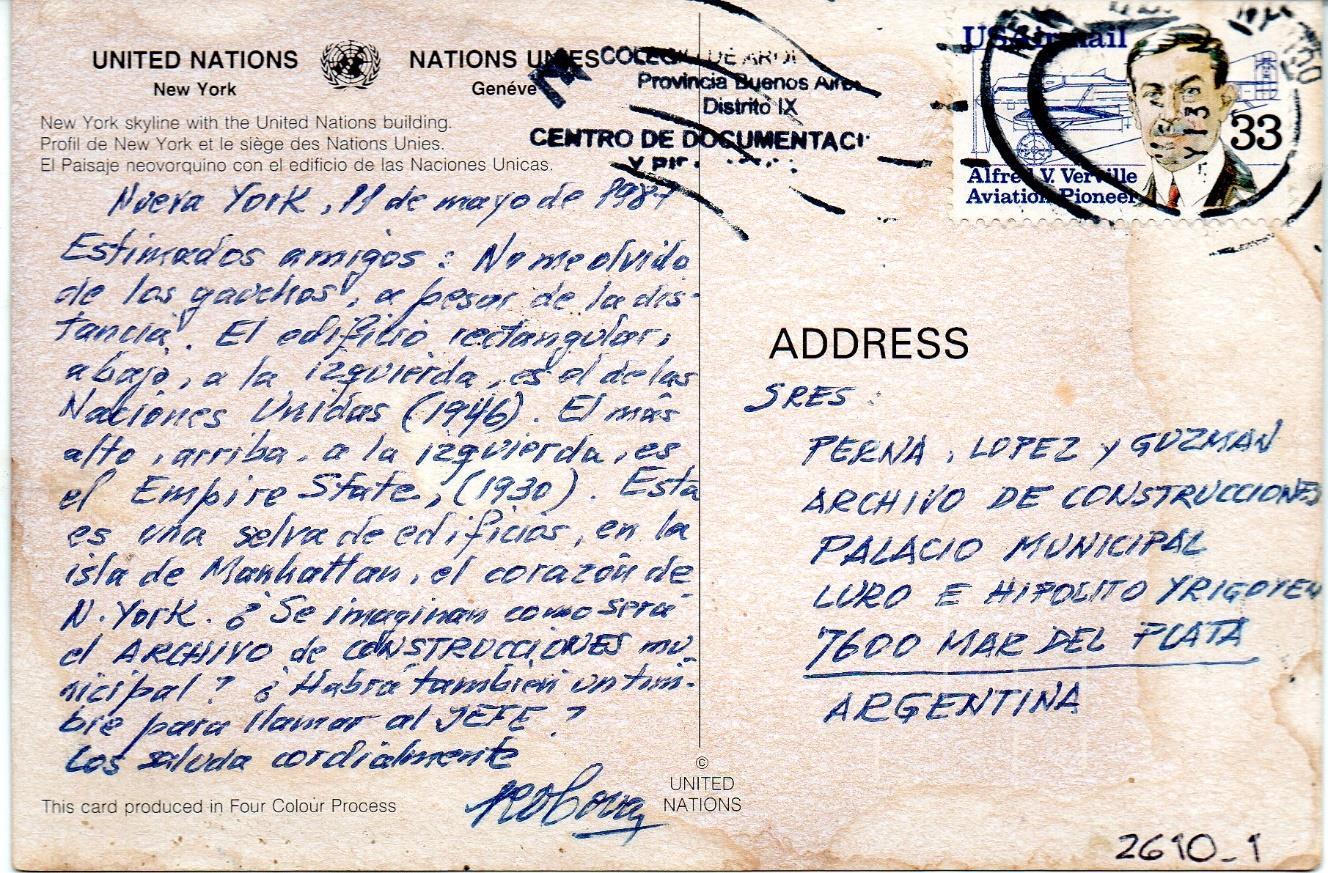 UNITED NATIONS NATIONS UNIES
New York Genéve
New York skyline with the United Nations building.
Profil de New York et le siège des Nations Unies.
El Paisaje neovorquino con el edificio de las Naciones Unicas.
Nueva York, 11 de mayo de 1987
Estimados amigos: No me olvido
de los gauchos, a pesar de la dis-
tancia. El edificio rectangular,
abajo, a la izquierda, es el de las
Naciones Unidas (1946). El más
alto, arriba, a la izquierda, es
el Empire State, (1930). Esta
es una selva de edificios, en la
isla de Manhattan, el corazón de
N. York. ¿Se imaginan como será
el ARCHIVO de CONSTRUCCIONES mu
nicipal? ¿Habrá también un tim-
bre para llamar al JEFE?
Los saluda cordialmente
This card produced in Four Colour Process
©
UNITED
NATIONS
COLEGIO DE
Provincia Buenos Aires
Distrito IX
CENTRO DE DOCUMENTACI
USAirmail
33
Alfred V. Verville
Aviation Pioneer
ADDRESS
SRES:
PERNA, LOPEZ y GUZMAN
ARCHIVO DE CONSTRUCCIONES
PALACIO MUNICIPAL
LURO E HIPOLITO YRIGOYEN
7600 MAR DEL PLATA
ARGENTINA
2610_1